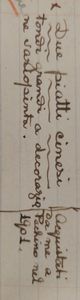 Due piatti cinesi
tondi grandi a decorazio
ne variopinta.
Acquistati
da me a
Pechino nel
1921.